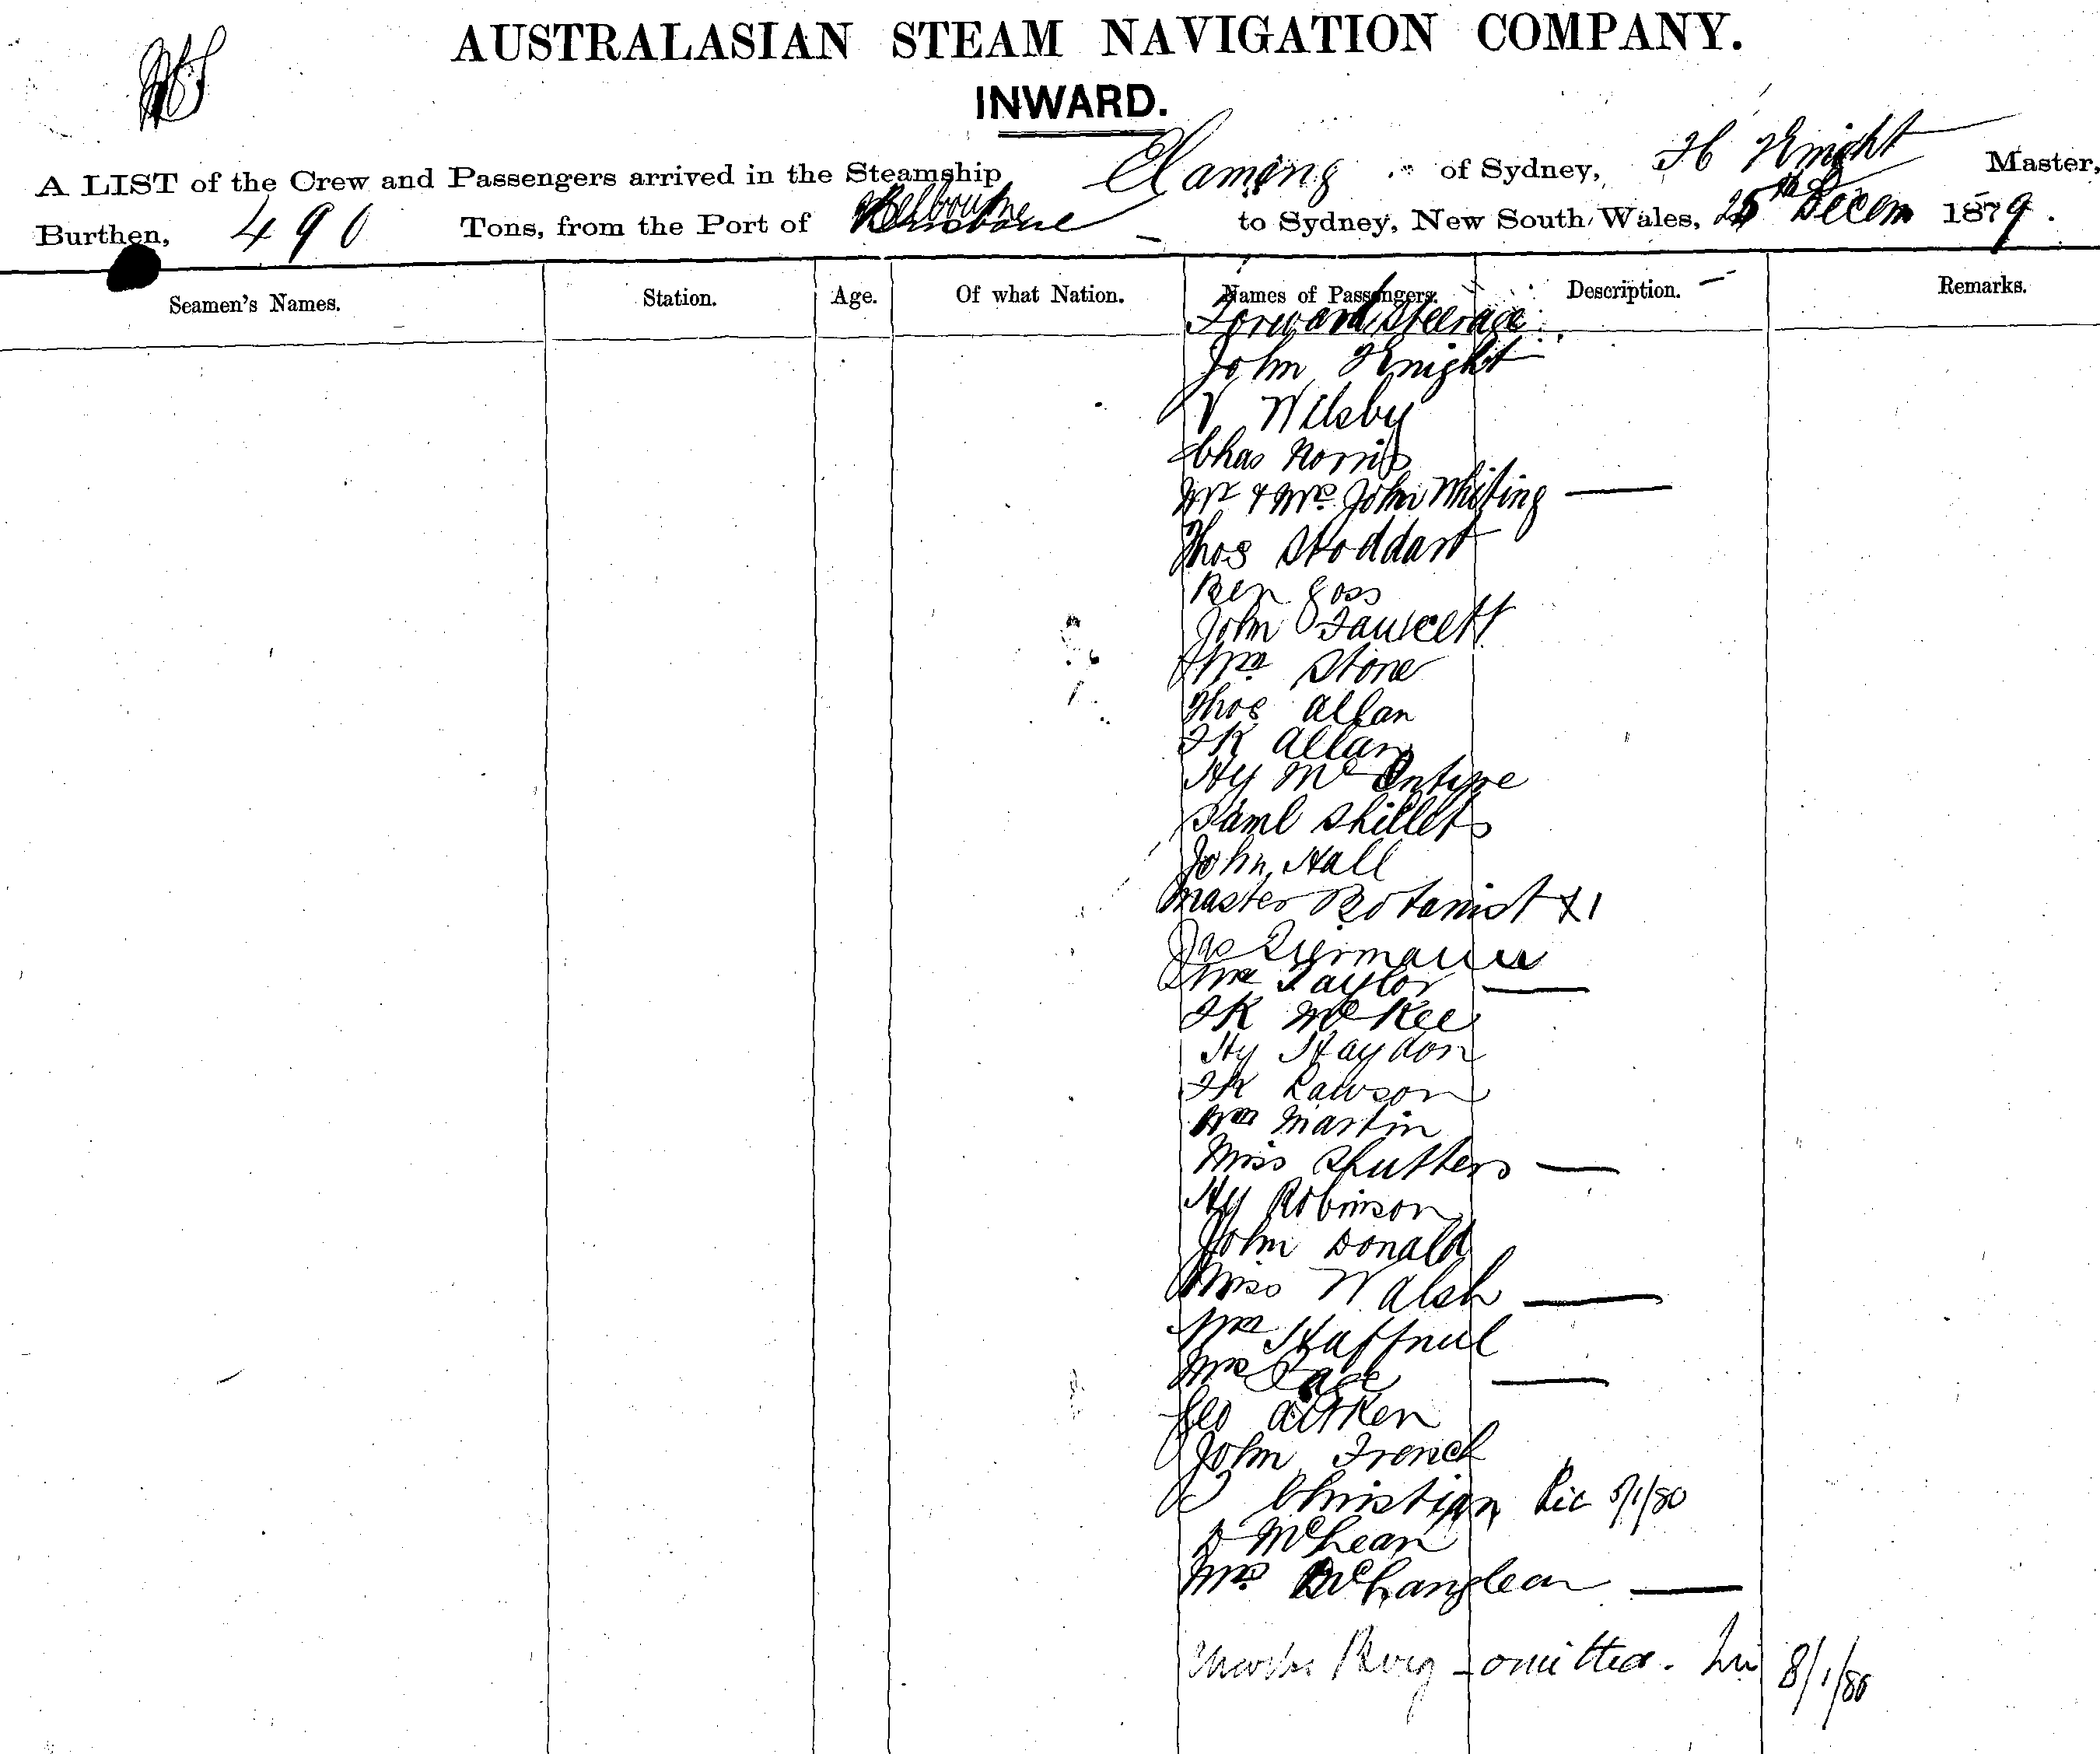 AUSTRALASIAN STEAM NAVIGATION COMPANY.
INWARD.
A LIST of the Crew and Passengers arrived in the Steamship of Sydney, H Knight Master,
Burthen, 490 Tons, from the Port of Melbourne Brisbane to Sydney, New South Wales, 25th Decem 1879.
Seamen's Names. Station. Age. Of what Nation. Names of Passengers. Description. Remarks.
Forward Steerage
John Knight
V Wilsby
Chas Norris
Mr & Mrs John Whiting
Thos Stoddart
Ben Goss
John Fawcett
Stone
Thos Allan
FK Allan
Hy McEntyre
Saml Shillets
John Hall
Master Botanist
Jas
Taylor
FK McKee
Hy Haydon
FK Lawson
Wm Martin
Miss Shutters
Hy Robinson
John Donald
Miss Walsh
Wm
Mrs
Geo Aitken
John French
Christian 5/1/80
D McLean
Mrs
omitted. 8/1/80